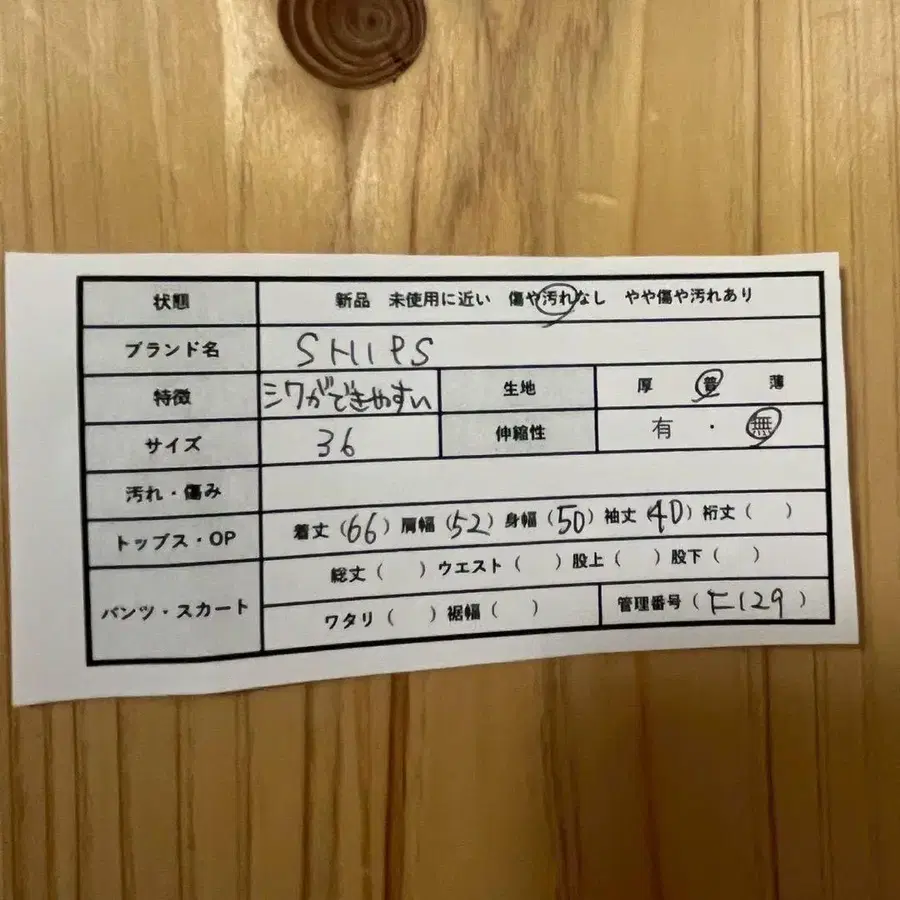 状態 新品 未使用に近い 傷や汚れなし やや傷や汚れあり
ブランド名 SHIPS
特徴 シワができやすい 生地 厚 普 薄
サイズ 36 伸縮性 有・無
汚れ・傷み
トップス・OP 着丈(66)肩幅(52)身幅(50)袖丈 40)裄丈( )
パンツ・スカート 総丈( )ウエスト( )股上( )股下( )
ワタリ( )裾幅( ) 管理番号(F129)